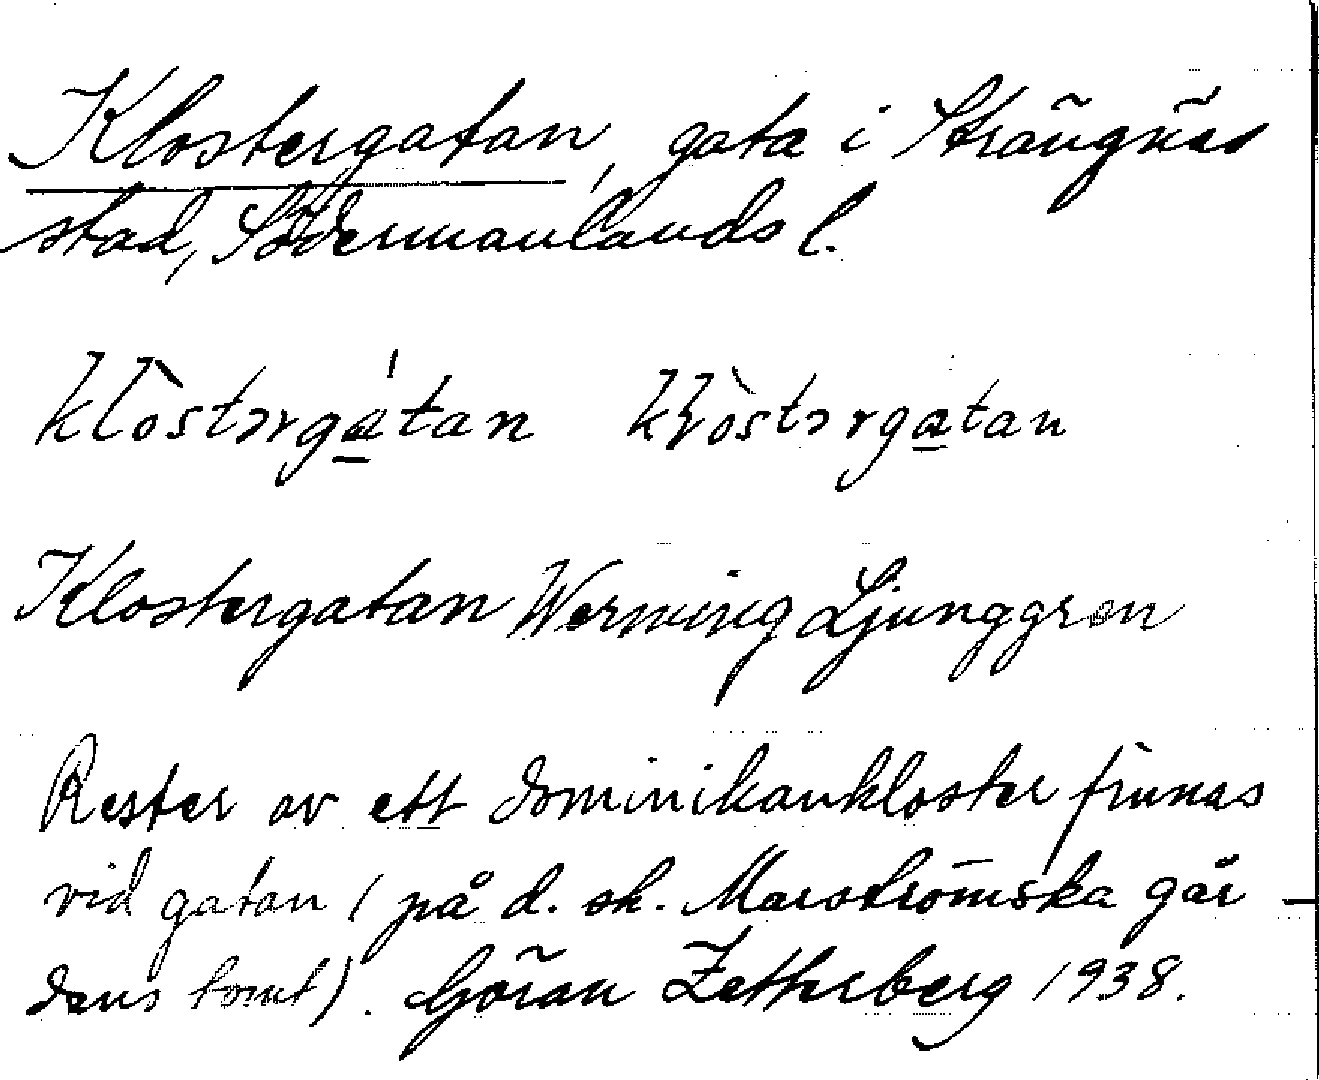 Klostergatan, gata i Strängnäs
stad, Södermanlands l.
klòstərgá̲tan kɽòstərga̲tan
Klostergatan Werming Ljunggren
Rester av ett dominikankloster finnas
vid gatan (på d. sk. Marströmska går-
dens tomt). Göran Zetterberg 1938.